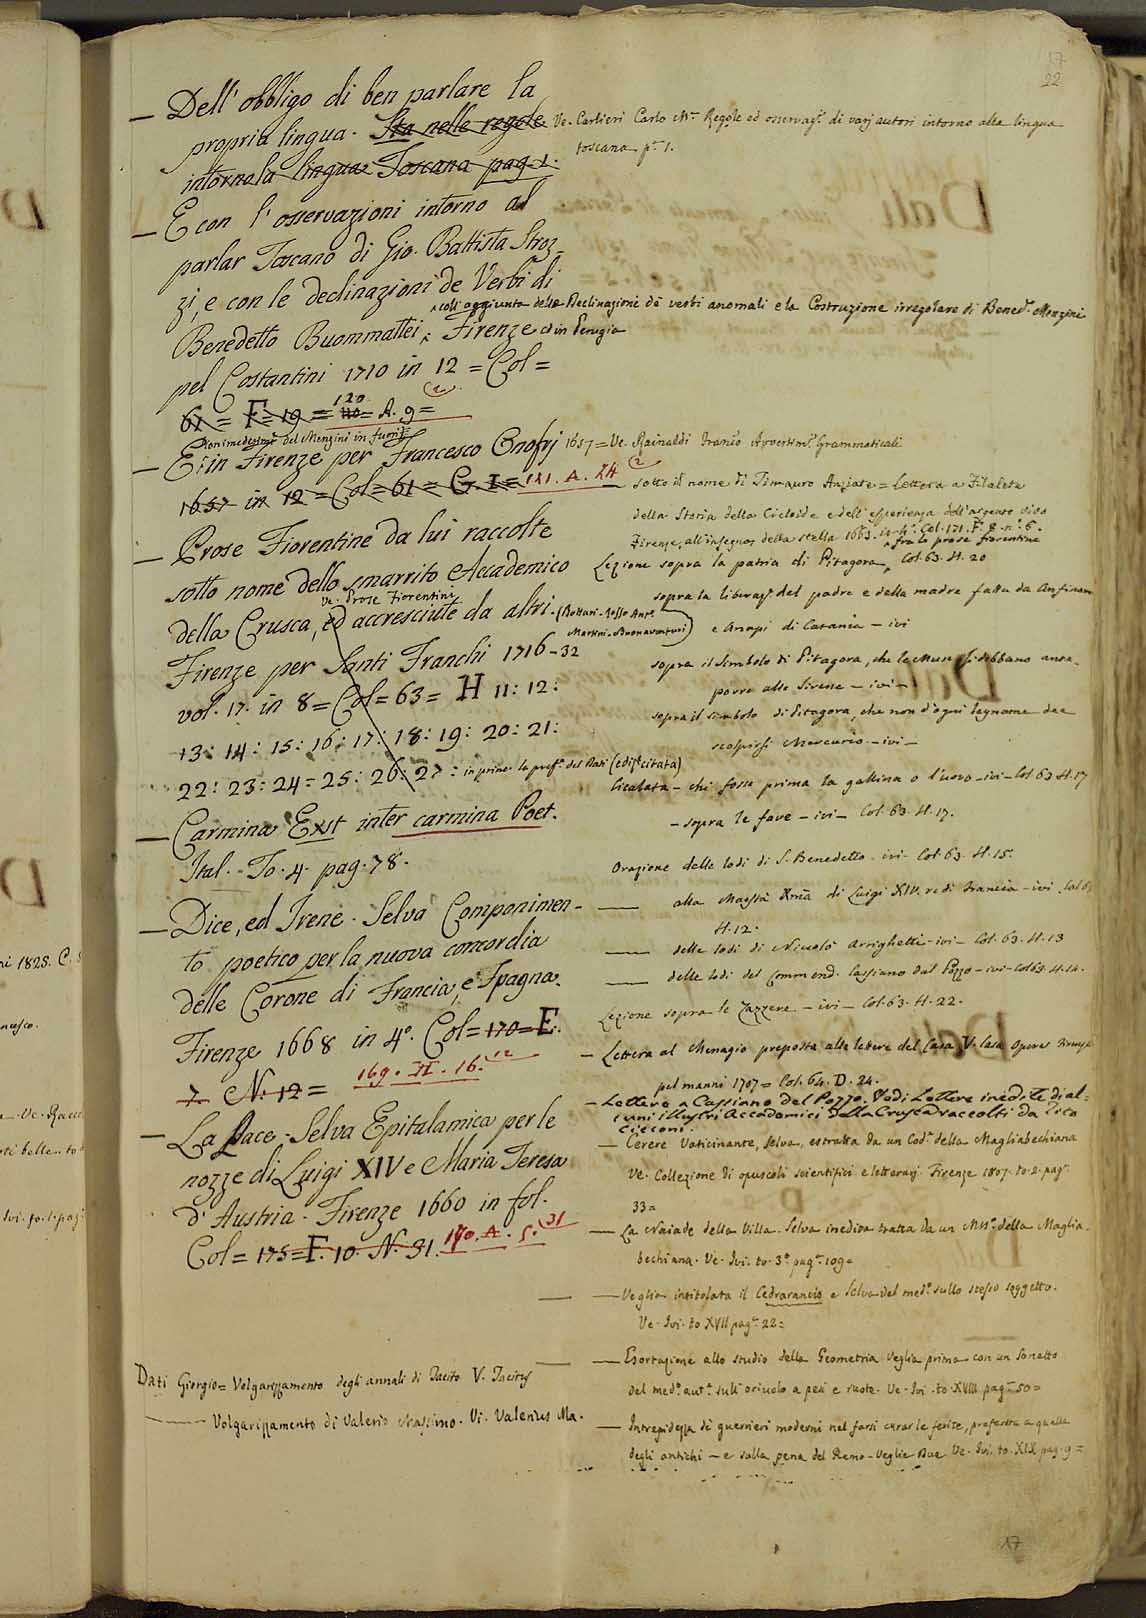 17
22
— Dell' obbligo di ben parlare la
propria lingua. Sta nelle regole
intorno la lingua Toscana pag. 1.
Ve. Carlieri Carlo M.ª Regole ed osservaz.i di varj autori intorno alla lingua
toscana p.e 1.
— E con l' osservazioni intorno al
parlar Toscano di Gio. Battista Stroz-
zi, e con le declinazioni de Verbi di
coll' aggiunta delle Declinazioni dè verbi anomali e la Costruzione irregolare di Bened.o Menzini
Benedetto Buommattei, Firenze ed in Perugia
pel Costantini 1710 in 12 = Col =
61 = F. 19 = 120 A. 9 =
del Menzini in fuori
— E in Firenze per Francesco Onofrj 1657
1657 in 12 = Col = 61 = G. I = 121. A. 24
= Ve. Rainaldi Franc.o Avvertim.i Grammaticali
sotto il nome di Timauro Anziate = Lettera a Filaleti
della Storia della Cicloide e dell' esperienza dell' argento vivo
Firenze, all' insegna della stella 1663. in 4.o Col. 171. F. 8. n.o 6.
— Prose Fiorentine da lui raccolte
sotto nome dello smarrito Accademico
Ve. Prose Fiorentine
della Crusca, ed accresciute da altri. (Bottari - Rosso Ant.o
Martini - Buonaventuri)
Firenze per Santi Franchi 1716 - 32
vol. 17. in 8 = Col = 63 = H 11: 12:
13: 14: 15: 16: 17: 18: 19: 20: 21:
22: 23: 24: 25: 26: 27: in princ. la pref.e del Dati (ediz.e citata)
fra le prose fiorentine
Lezione sopra la patria di Pitagora, Col. 63. H. 20
sopra la liberaz.e del padre e della madre fatta da Anfinom
e Anapi di Catania — ivi
sopra il Simbolo di Pitagora, che le Muse si debbano ante-
porre alle Sirene — ivi —
sopra il simbolo di Pitagora, che non d' ogni legname dee
scolpirsi Mercurio — ivi —
Cicalata — chi fosse prima la gallina o l' uovo — ivi — Col 63 H. 17
— sopra le fave — ivi — Col. 63. H. 17.
— Carmina Exst inter carmina Poet.
Ital. - To. 4. pag. 78.
Orazione delle lodi di S. Benedetto. ivi - Col. 63. H. 15.
— alla Maestà Xma di Luigi XIV. re di Francia — ivi Col 63
H. 12.
— delle lodi di Niccolò Arrighetti - ivi - Col. 63. H. 13
— delle lodi del Commend. Cassiano dal Pozzo — ivi - Col 63. H. 14.
Lezione sopra le Zazzere — ivi — Col. 63. H. 22.
— Dice, ed Irene. Selva Componimen-
to poetico per la nuova concordia
delle Corone di Francia, e Spagna.
Firenze 1668 in 4.o Col = 170 = E.
7. N. 12 = 169. H. 16. 12
— Lettera al Menagio preposta alle lettere del Casa V. Casa Opere
pel manni 1707 = Col. 64. D. 24.
— Lettere a Cassiano del Pozzo. Vedi Lettere inedite di al-
cuni illustri Accademici della Crusca raccolti da
— La Pace. Selva Epitalamica per le
nozze di Luigi XIV e Maria Teresa
d' Austria. Firenze 1660 in fol.
Col = 175 = F. 10. N. 31. 170. A. 5. 31
— Cerere Vaticinante, selva, estratta da un Cod.e della Magliabechiana
Ve. Collezione di opuscoli scientifici e letterarj. Firenze 1807. to. 2. pag.
33 =
— La Najade della Villa. Selva inedita tratta da un MS.o della Maglia-
bechiana. Ve. Ivi. to. 3.o pag. 109 =
— Veglia intitolata il Cedrarancio e Selva del med.o sullo stesso soggetto.
Ve. Ivi. to XVII pag. 22 =
— Esortazione allo studio della Geometria Veglia prima con un Sonetto
del med.o aut.e sull' oriuolo a pesi e ruote. Ve. Ivi. to. XVIII pag. 50 =
— Intrepidezza dè guerrieri moderni nel farsi curar le ferite, preferita a quella
degli antichi — e sulla pena del Remo - Veglie due Ve. Ivi. to. XIX pag. 9 =
Dati Giorgio = Volgarizzamento degli annali di Tacito V. Tacitus
— Volgarizzamento di Valerio Massimo. Vi. Valerius Ma.
17